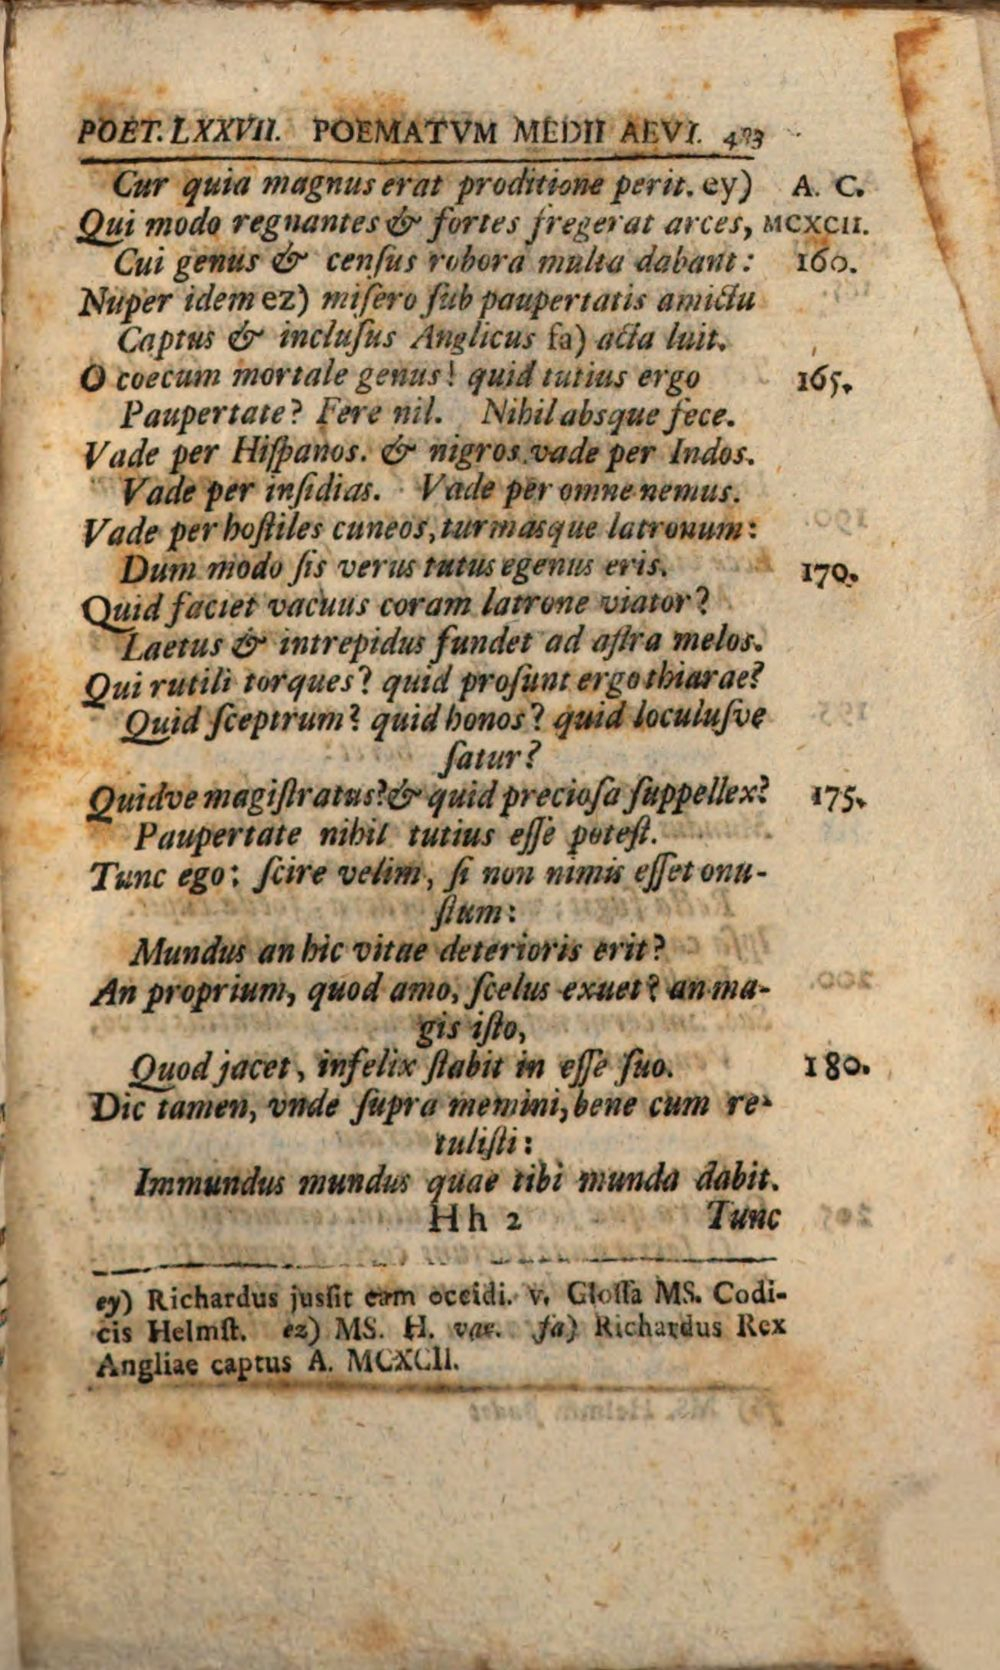 POET. LXXVII. POEMATVM MEDII AEVI. 483
Cur quia magnus erat proditione perit. ey) A. C.
Qui modo regnantes & fortes fregerat arces, MCXCII.
Cui genus & censſus robora multa dabant: 160.
Nuper idem ez) miſero ſub paupertatis amictu
Captus & incluſus Anglicus fa) acta luit.
O coecum mortale genus! quid tutius ergo 165.
Paupertate? Fere nil. Nihil absque fece.
Vade per Hiſpanos. & nigros vade per Indos.
Vade per inſidias. Vade per omne nemus.
Vade per hoſtiles cuneos, turmasque latronum:
Dum modo ſis verus tutus egenus eris. 170.
Quid faciet vacuus coram latrone viator?
Laetus & intrepidus fundet ad aſtra melos.
Qui rutili torques? quid proſunt ergo thiarae?
Quid ſceptrum? quid honos? quid loculuſve
ſatur?
Quidve magiſtratus? & quid precioſa ſuppellex? 175.
Paupertate nihil tutius eſſe poteſt.
Tunc ego: ſcire velim, ſi non nimis eſſet onu-
ſtum:
Mundus an hic vitae deterioris erit?
An proprium, quod amo, ſcelus exuet? an ma-
gis iſto,
Quod jacet, infelix ſtabit in eſſe ſuo. 180.
Dic tamen, vnde ſupra memini, bene cum re-
tuliſti:
Immundus mundus quae tibi munda dabit.
Hh 2 Tunc
ey) Richardus jusſit eam occidi. v. Gloſſa MS. Codi-
cis Helmſt. ez) MS. H. vae. fa) Richardus Rex
Angliae captus A. MCXCII.